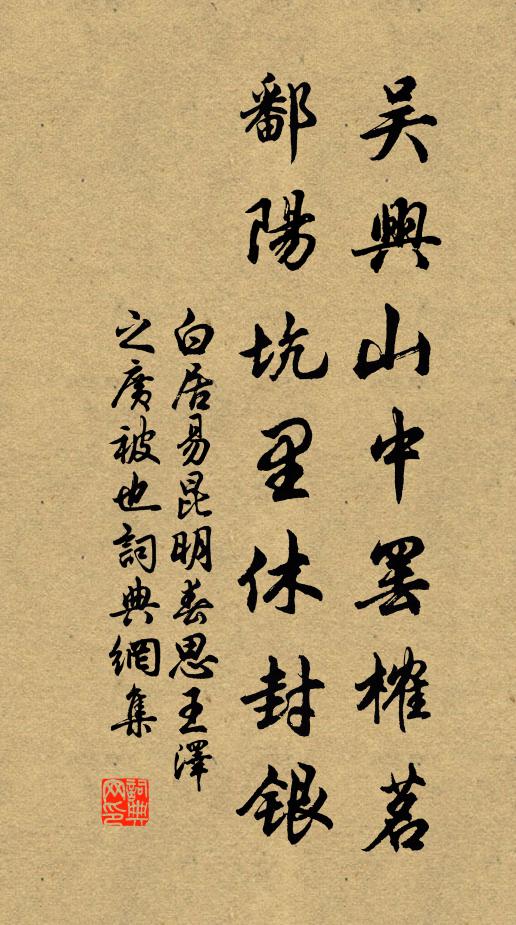 吴興山中罢榷茗
鄱陽坑里休封银
白居易昆明春思王澤
之廣被也詞典網集
詞典网印